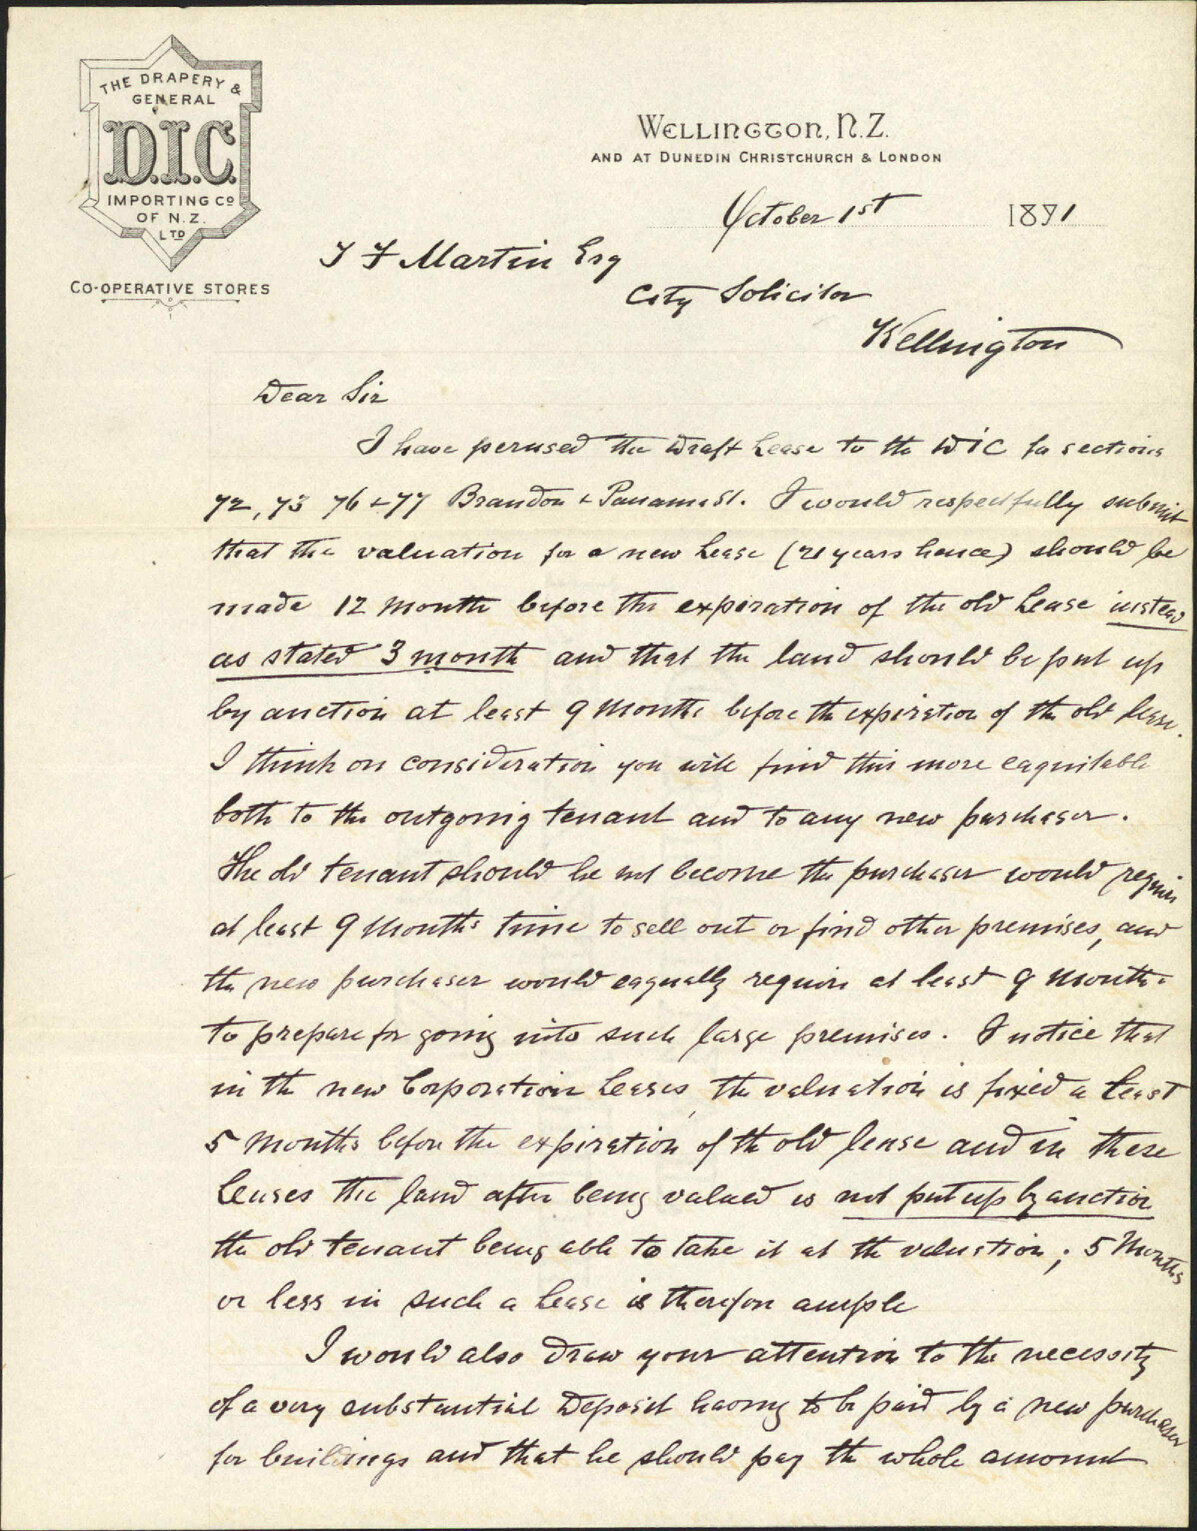 THE DRAPERY &
GENERAL
D.I.C.
IMPORTING Co
OF N.Z.
LTD
CO-OPERATIVE STORES
WELLINGTON, N.Z.
AND AT DUNEDIN CHRISTCHURCH & LONDON
October 1st 1891
T F Martin Esq
City Solicitor
Wellington
Dear Sir
I have perused the Draft Lease to the DIC for sections
72, 73 76 & 77 Brandon & Panama St. I would respectfully submit
that the valuation for a new Lease (21 years hence) should be
made 12 month before the expiration of the old Lease instead
as stated 3 month and that the land should be put up
by auction at least 9 months before the expiration of the old lease.
I think on consideration you will find this more eaquitable
both to the outgoing tenant and to any new purchaser.
The old tenant should he not become the purchaser would require
at least 9 months time to sell out or find other premises, and
the new purchaser would eaqually require at least 9 months
to prepare for going into such large premises. I notice that
in the new Corporation Leases the valuation is fixed a least
5 months before the expiration of the old lease and in these
Leases the land after being valued is not put up by auction
the old tenant being able to take it at the valuation; 5 months
or less in such a Lease is therefor ample
I would also draw your attention to the necessity
of a very substantial Deposit having to be paid by a new purchaser
for buildings and that he should pay the whole amount